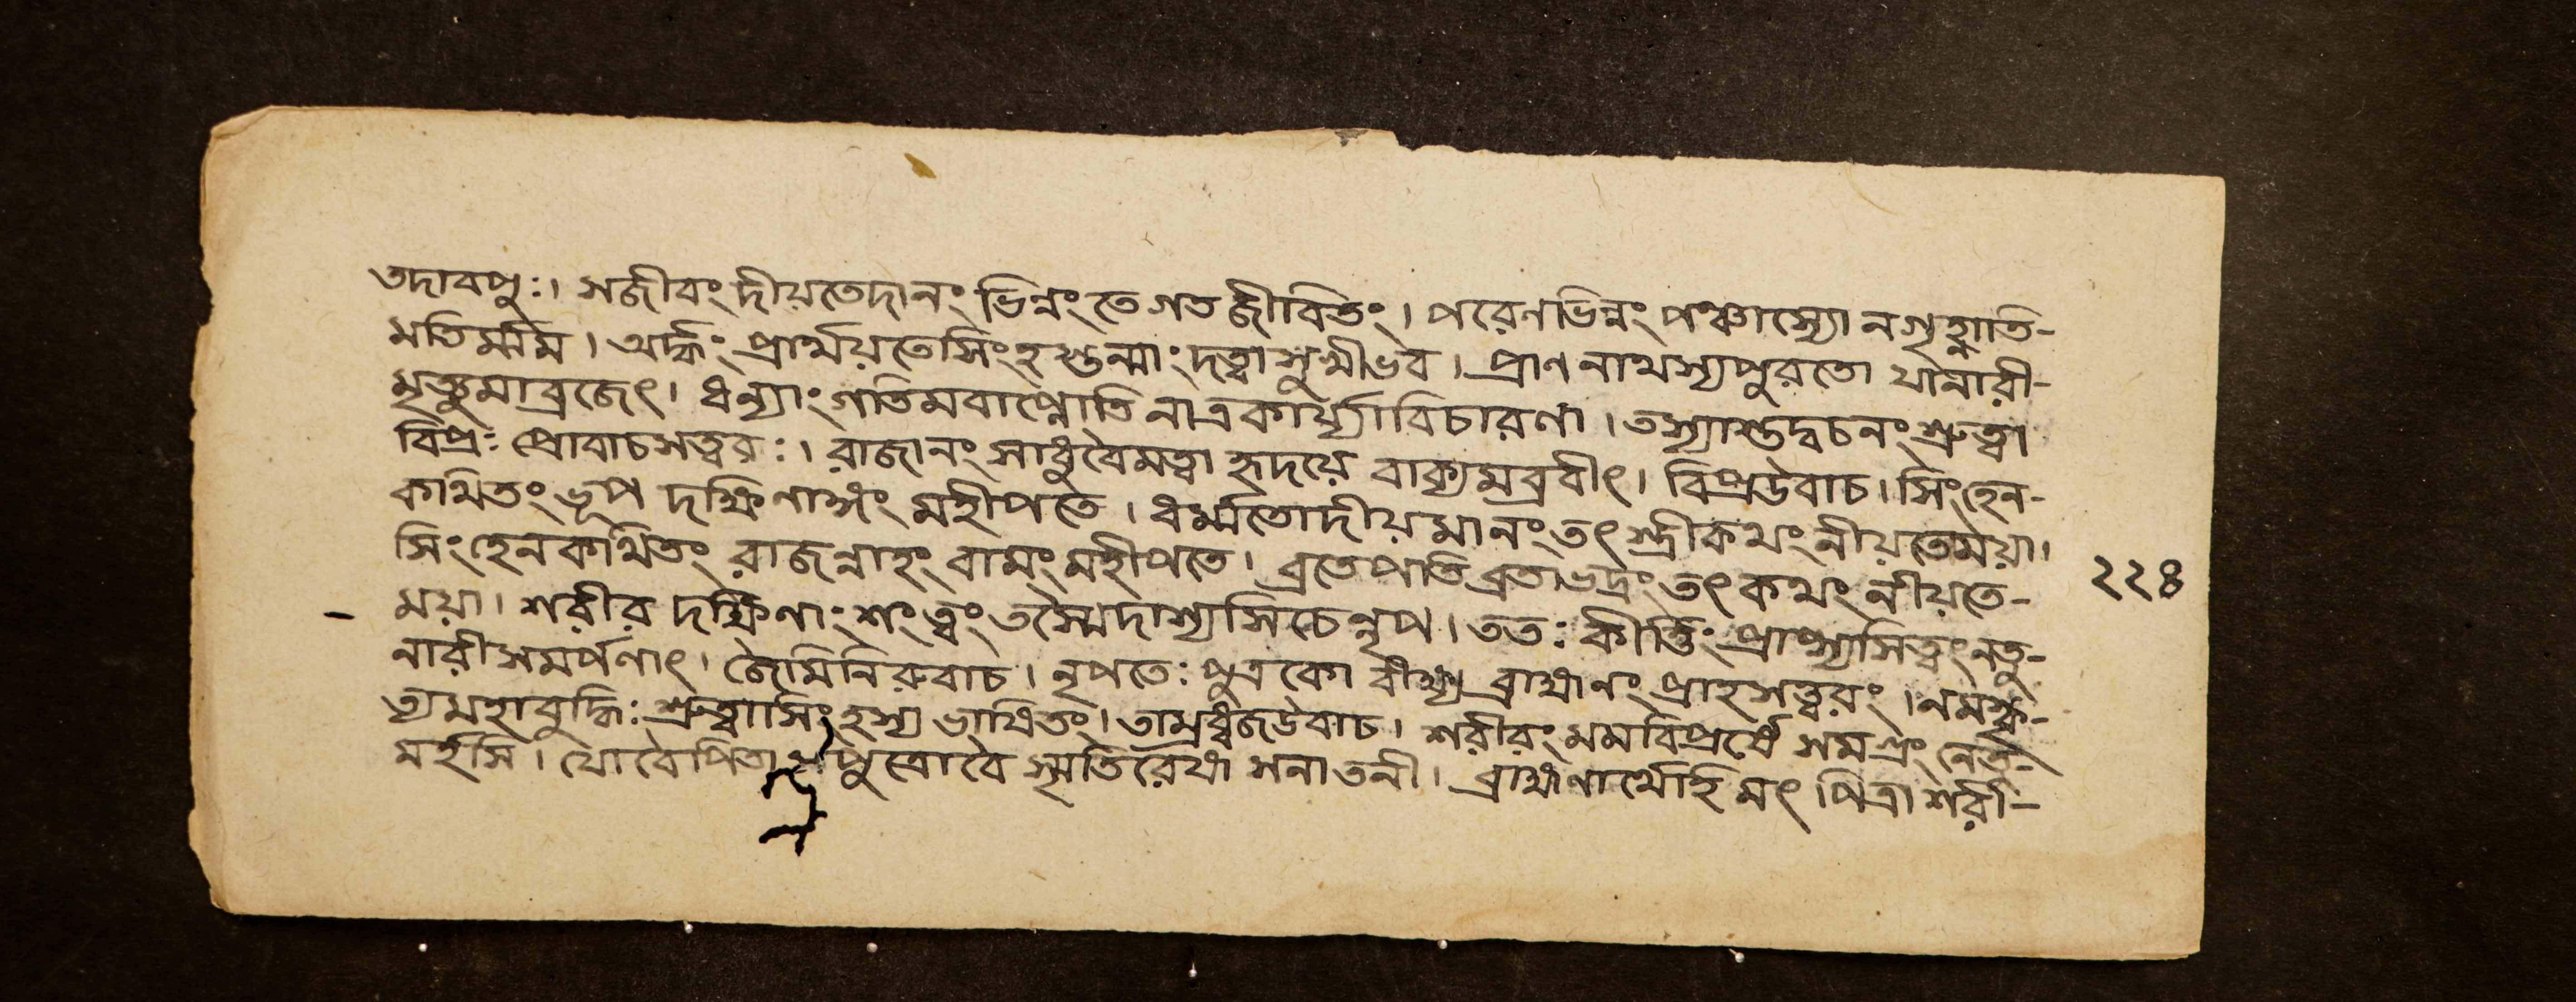 তদাবপুঃ। সজীবং দীয়তেদানং ভিন্নং তে গতজীবিতং। পরেণভিন্নং পঞ্চাস্যো নগৃহ্ণাতি-
মতির্ম্মম। অর্দ্ধং প্রার্থয়তেসিংহস্তন্মাং দত্বা সুখীভব। প্রাণনাথস্যপুরতো যানারী-
মৃত্যুমাব্রজেৎ। ধন্যাং গতিমবাপ্নোতি নাত্রকার্য্যাবিচারণা। তস্যাস্তদ্বচনং শ্রুত্বা
বিপ্রঃ প্রোবাচসত্বরঃ। রাজানং সাধুবৈমত্বা হৃদয়ে বাক্যমব্রবীৎ। বিপ্রউবাচ। সিংহেন-
কথিতং ভূপ দক্ষিণাঙ্গং মহীপতে। ধর্ম্মতোদীয়মানং তৎ স্ত্রীকথং নীয়তেময়া।
সিংহেনকথিতং রাজন্নাহং বামং মহীপতে। ব্রতেপতিব্রতাভদ্রং তৎ কথং নীয়তে-
ময়া। শরীর দক্ষিণাংশং ত্বং তস্মৈদাশ্যসিচেন্নৃপ। ততঃ কীর্ত্তিং প্রাপ্স্যসিত্বং নতু-
নারীসমর্পণাৎ। জৈমিনিরুবাচ। নৃপতেঃ পুত্রকো বীক্ষ্য ব্রাহ্মানং প্রাহসত্ত্বরং। নমস্কৃ-
ত্যমহাবুদ্ধিঃ শ্রুত্বাসিংহস্য ভাষিতং। তাম্রধ্বজউবাচ। শরীরং মমবিপ্রর্ষে সমগ্রং নেতু-
মর্হসি। যোবৈপিতা পুত্রোবৈ স্মৃতিরেষা সনাতনী। ব্রাহ্মণার্থোহি মং পিত্রা শরী-
২২৪